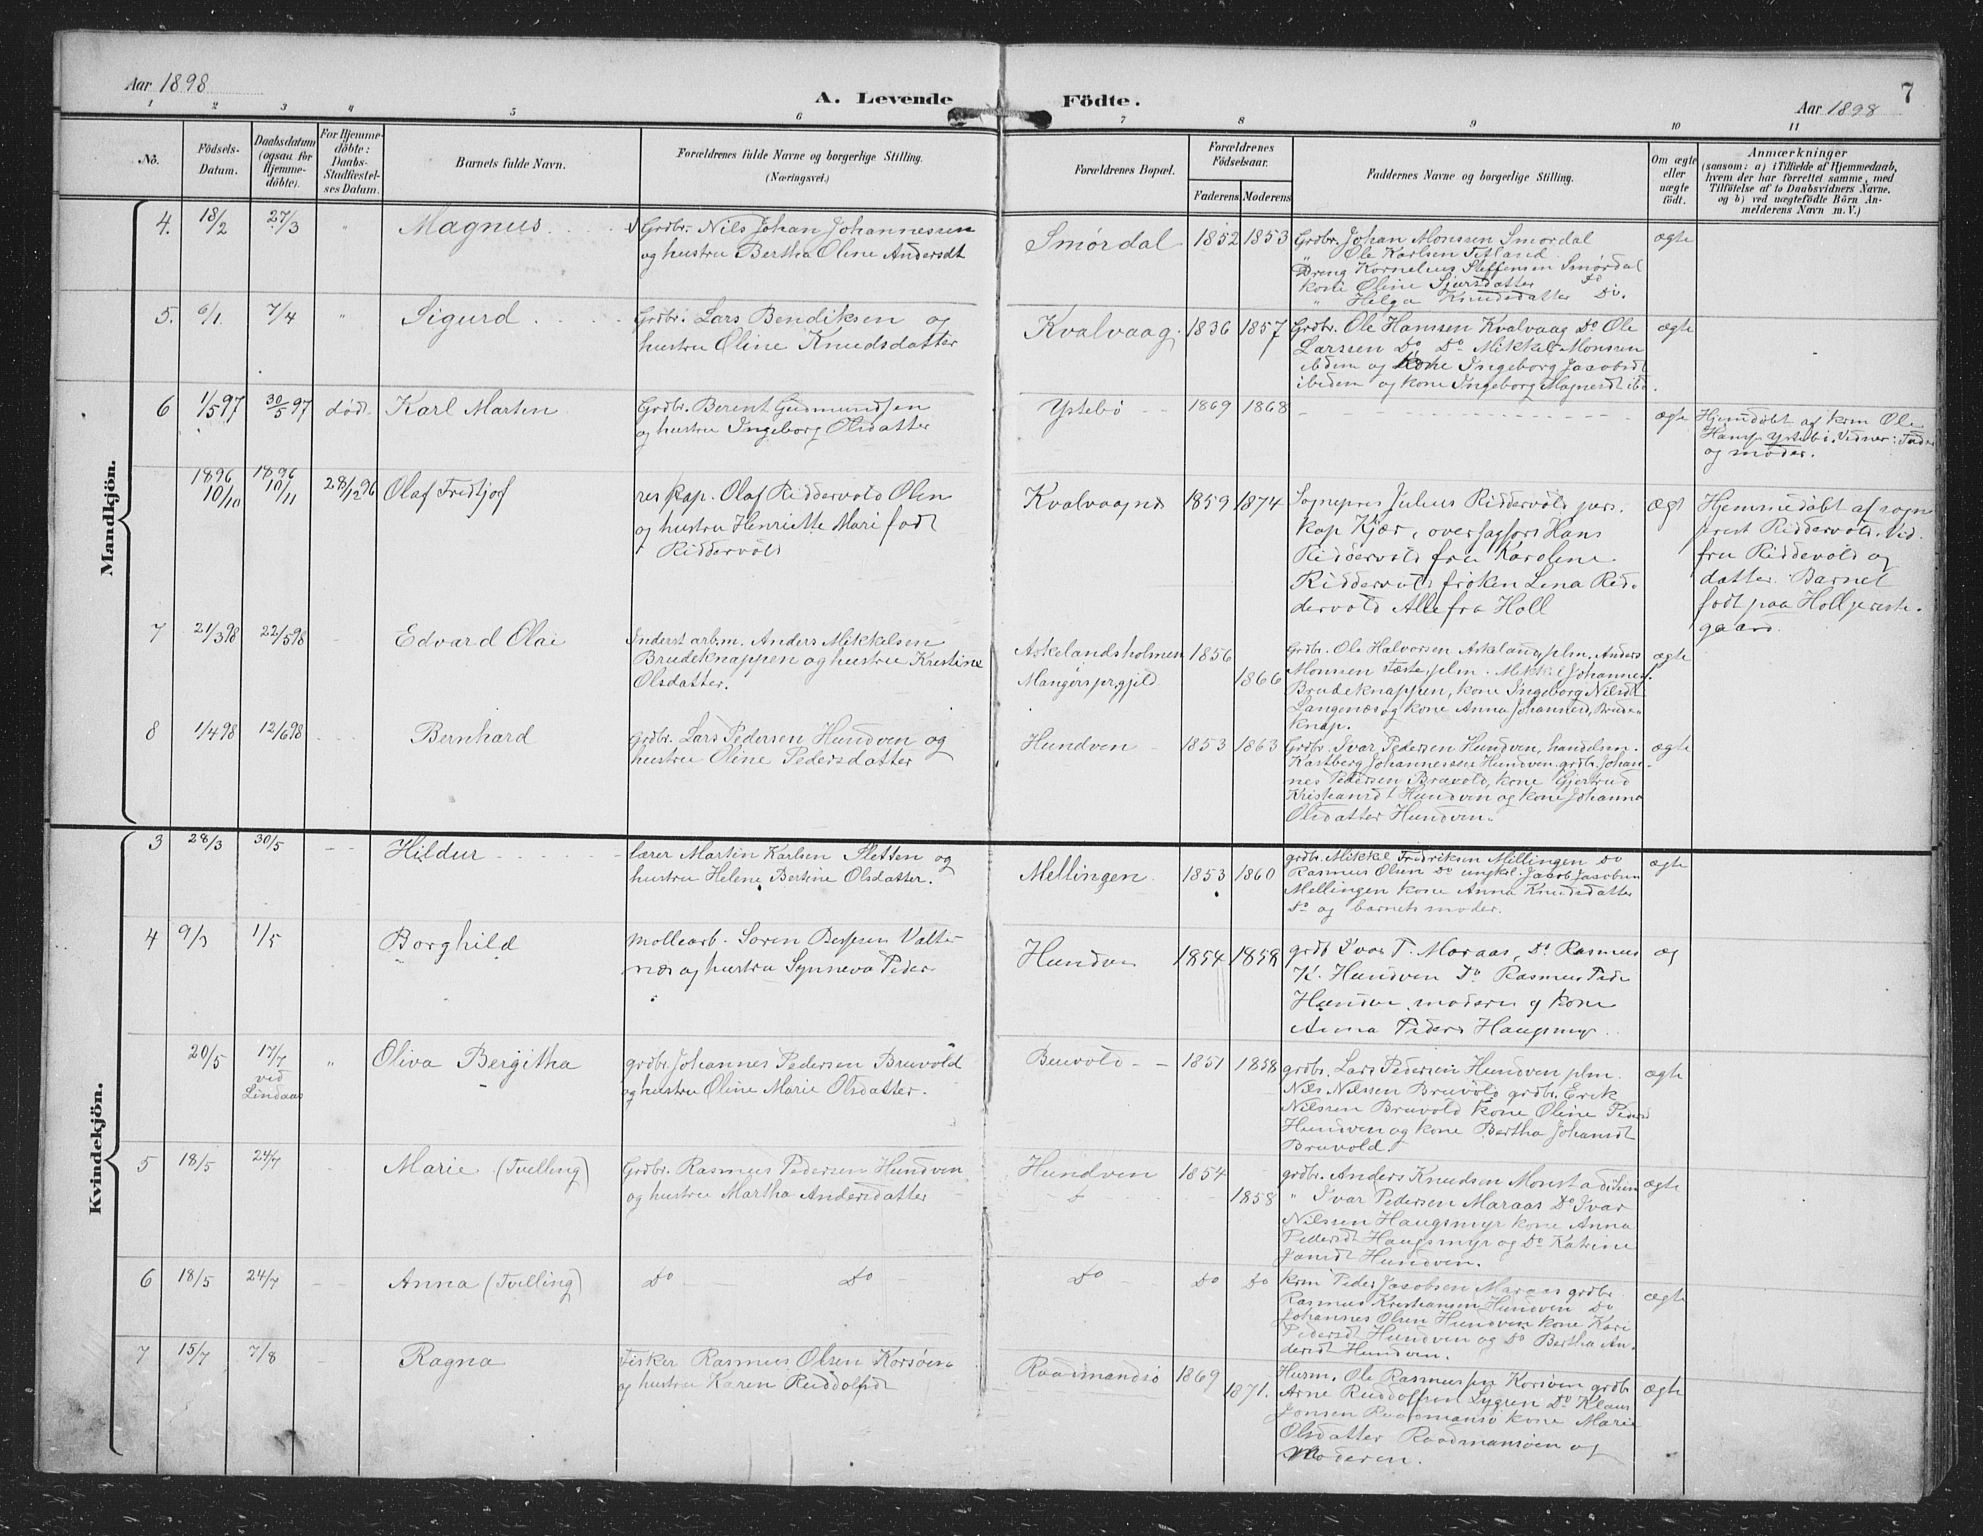 Aar 1898
A. Levende Födte.
Aar 1898
7
1 2 3 4 5 6 7 8 9 10 11
No.
Födsels-
Datum.
Daabsdatum
(ogsaa for
Hjemme-
döbte).
For Hjemme-
döbte:
Daabs-
Stadfæstel-
ses Datum.
Barnets fulde Navn.
Forældrenes fulde Navne og borgerlige Stilling.
(Næringsvei.)
Forældrenes Bopæl.
Forældrenes
Födselsaar.
Faderens Moderens
Faddernes Navne og borgerlige Stilling.
Om ægte
eller
uægte
födt.
Anmærkninger
(saasom: a) i Tilfælde af Hjemmedaab,
hvem der har forrettet samme, med
Tilföielse af to Daabsvidners Navne.
og b) ved uægtefödte Börn An-
melderens Navn m. V.)
Mandkjön.
4. 18/2 27/3 " Magnus
Grdbr. Nils Johan Johannessen
og hustru Bertha Oline Andersdt
Smørdal 1852 1853
Grdbr. Johan Monssen Smørdal
" Ole Karlsen Fetland
Dreng Kornelius Steffensen Smørdal
kone Oline Sjursdatter Do
" Helga Knudsdatter Do.
ægte
5. 6/1 7/4 " Sigurd
Grdbr. Lars Bendiksen og
hustru Oline Knudsdatter
Kvalvaag 1836 1857
Grdbr. Ole Hanssen Kvalvaag Do Ole
Larssen Do Do Mikkel Monssen
ibidem og kone Ingeborg Jacobsdt
ibidem og kone Ingeborg Magnesdt ibd.
ægte
6 1/5 97 30/5 97 død. Karl Martin
Grdbr. Berent Gudmundsen
og hustru Ingeborg Olsdatter
Ystebø 1869 1868
ægte
Hjemdøbt af krm Ole
Hans. Ystebø. Vidner: Fader
og moder.
1896 10/10 1896 10/11 28/12 96 Olaf Fredtjof
Olaf Riddervold Olen
og hustru Henriette Mari født
Riddervold
Kvalvaagnes 1859 1874
Sognepres Julius Riddervold pers.
kap Kjær, Hans
Riddervold fru Karoline
Riddervold frøken Lena Rid-
dervold Alle fra Holl
ægt
Hjemmedøbt af sogne
prest Riddervold. Vid.
fru Riddevold og
datter. Barnet
født paa Holl preste-
gaard.
7 21/3 98 22/5 98 Edvard Olai
Inderst arbm. Anders Mikkelsen
Brudeknappen og hustru Kristine
Olsdatter.
Askelandsholmen
Mangers prgjeld
1856 1866
Grdbr. Ole Halvorsen plm. Anders
Monsen plm. Mikkel Johannes.
Brudeknappen, kone Ingeborg Nilsdt
Langenæs og kone Anna Johannesd, Brude-
knap.
ægte
8 1/4 98 12/6 98 Bernhard
Grdbr. Lars Pedersen Hundven og
hustru Oline Pedersdatter
Hundven 1853 1863
Grdbr. Ivar Pedersen Hundven, handelsm.
Kastberg Johannessen Hundven. grdbr. Johan-
nes Pedersen Bruvold, kone Gjertrud
Kristiansdt Hundven og kone Johanna
Olsdatter Hundven.
ægte
Kvindekjön.
3 28/3 30/5 Hildur
lærer Martin Karlsen Sletten og
hustru Helene Bertine Olsdatter.
Mellingen 1853 1860
grdbr. Mikkel Fredriksen Mellingen Do
Rasmus Olsen Do ungkl. Jacob Jacobsen
Mellingen kone Anna Knudsdatter
Do og barnets moder.
ægte
4 9/3 1/5 Borghild
Møllearb. Søren Valter
næs og hustru Synneva Peder-
Hundven 1854 1858
grdb Ivar P. Maraas, Do Rasmus
K. Hundven Do Rasmus Pede
Hundve moderen og kone
Anna Peders Haugsmyr.
æg
20/5 17/7 ved Lindaas " Oliva Bergitha
grdbr. Johannes Pedersen Bruvold
og hustru Oline Marie Olsdatter.
Bruvold 1851 1858
grdbr. Lars Pedersen Hundven plm.
Nils Nilssen Bruvold grdbr. Erik
Nilssen Bruvold kone Oline Pedersd
Hundven og kone Bertha Johansdt
Bruvold.
ægte
5 18/5 24/7 Marie (Tvilling)
Grdbr. Rasmus Pedersen Hundven
og hustru Martha Andersdatter
Hundven 1854 1858
grdbr. Anders Knudsen
" Ivar Pedersen Maraas Do Ivar
Nilssen Haugsmyr kone Anna
Pedersdt Haugsmyr og Do Katrine
Jansdt Hundven.
ægte
6 18/5 24/7 Anna (Tvilling)
Do Do
Do Do Do
krm Peder Jacobsen Maraas grdbr.
Rasmus Kristiansen Hundven Do
Johannes Olsen Hundven kone Kari
Pedersdt Hundven og Do Bertha An-
dersdt Hundven.
ægte
7 15/7 7/8 Ragna
Fisker Rasmus Olsen Korsøen
og hustru Karen Ruddolfsdt
Raadmandsø 1869 1871.
Husm. Ole Rasmussen Korsøen grdbr.
Arne Ruddolfsen Lygren Do Klaus
Jonsen Raadmansø kone Marie
Olsdatter Raadmansøen og
Moderen.
ægte